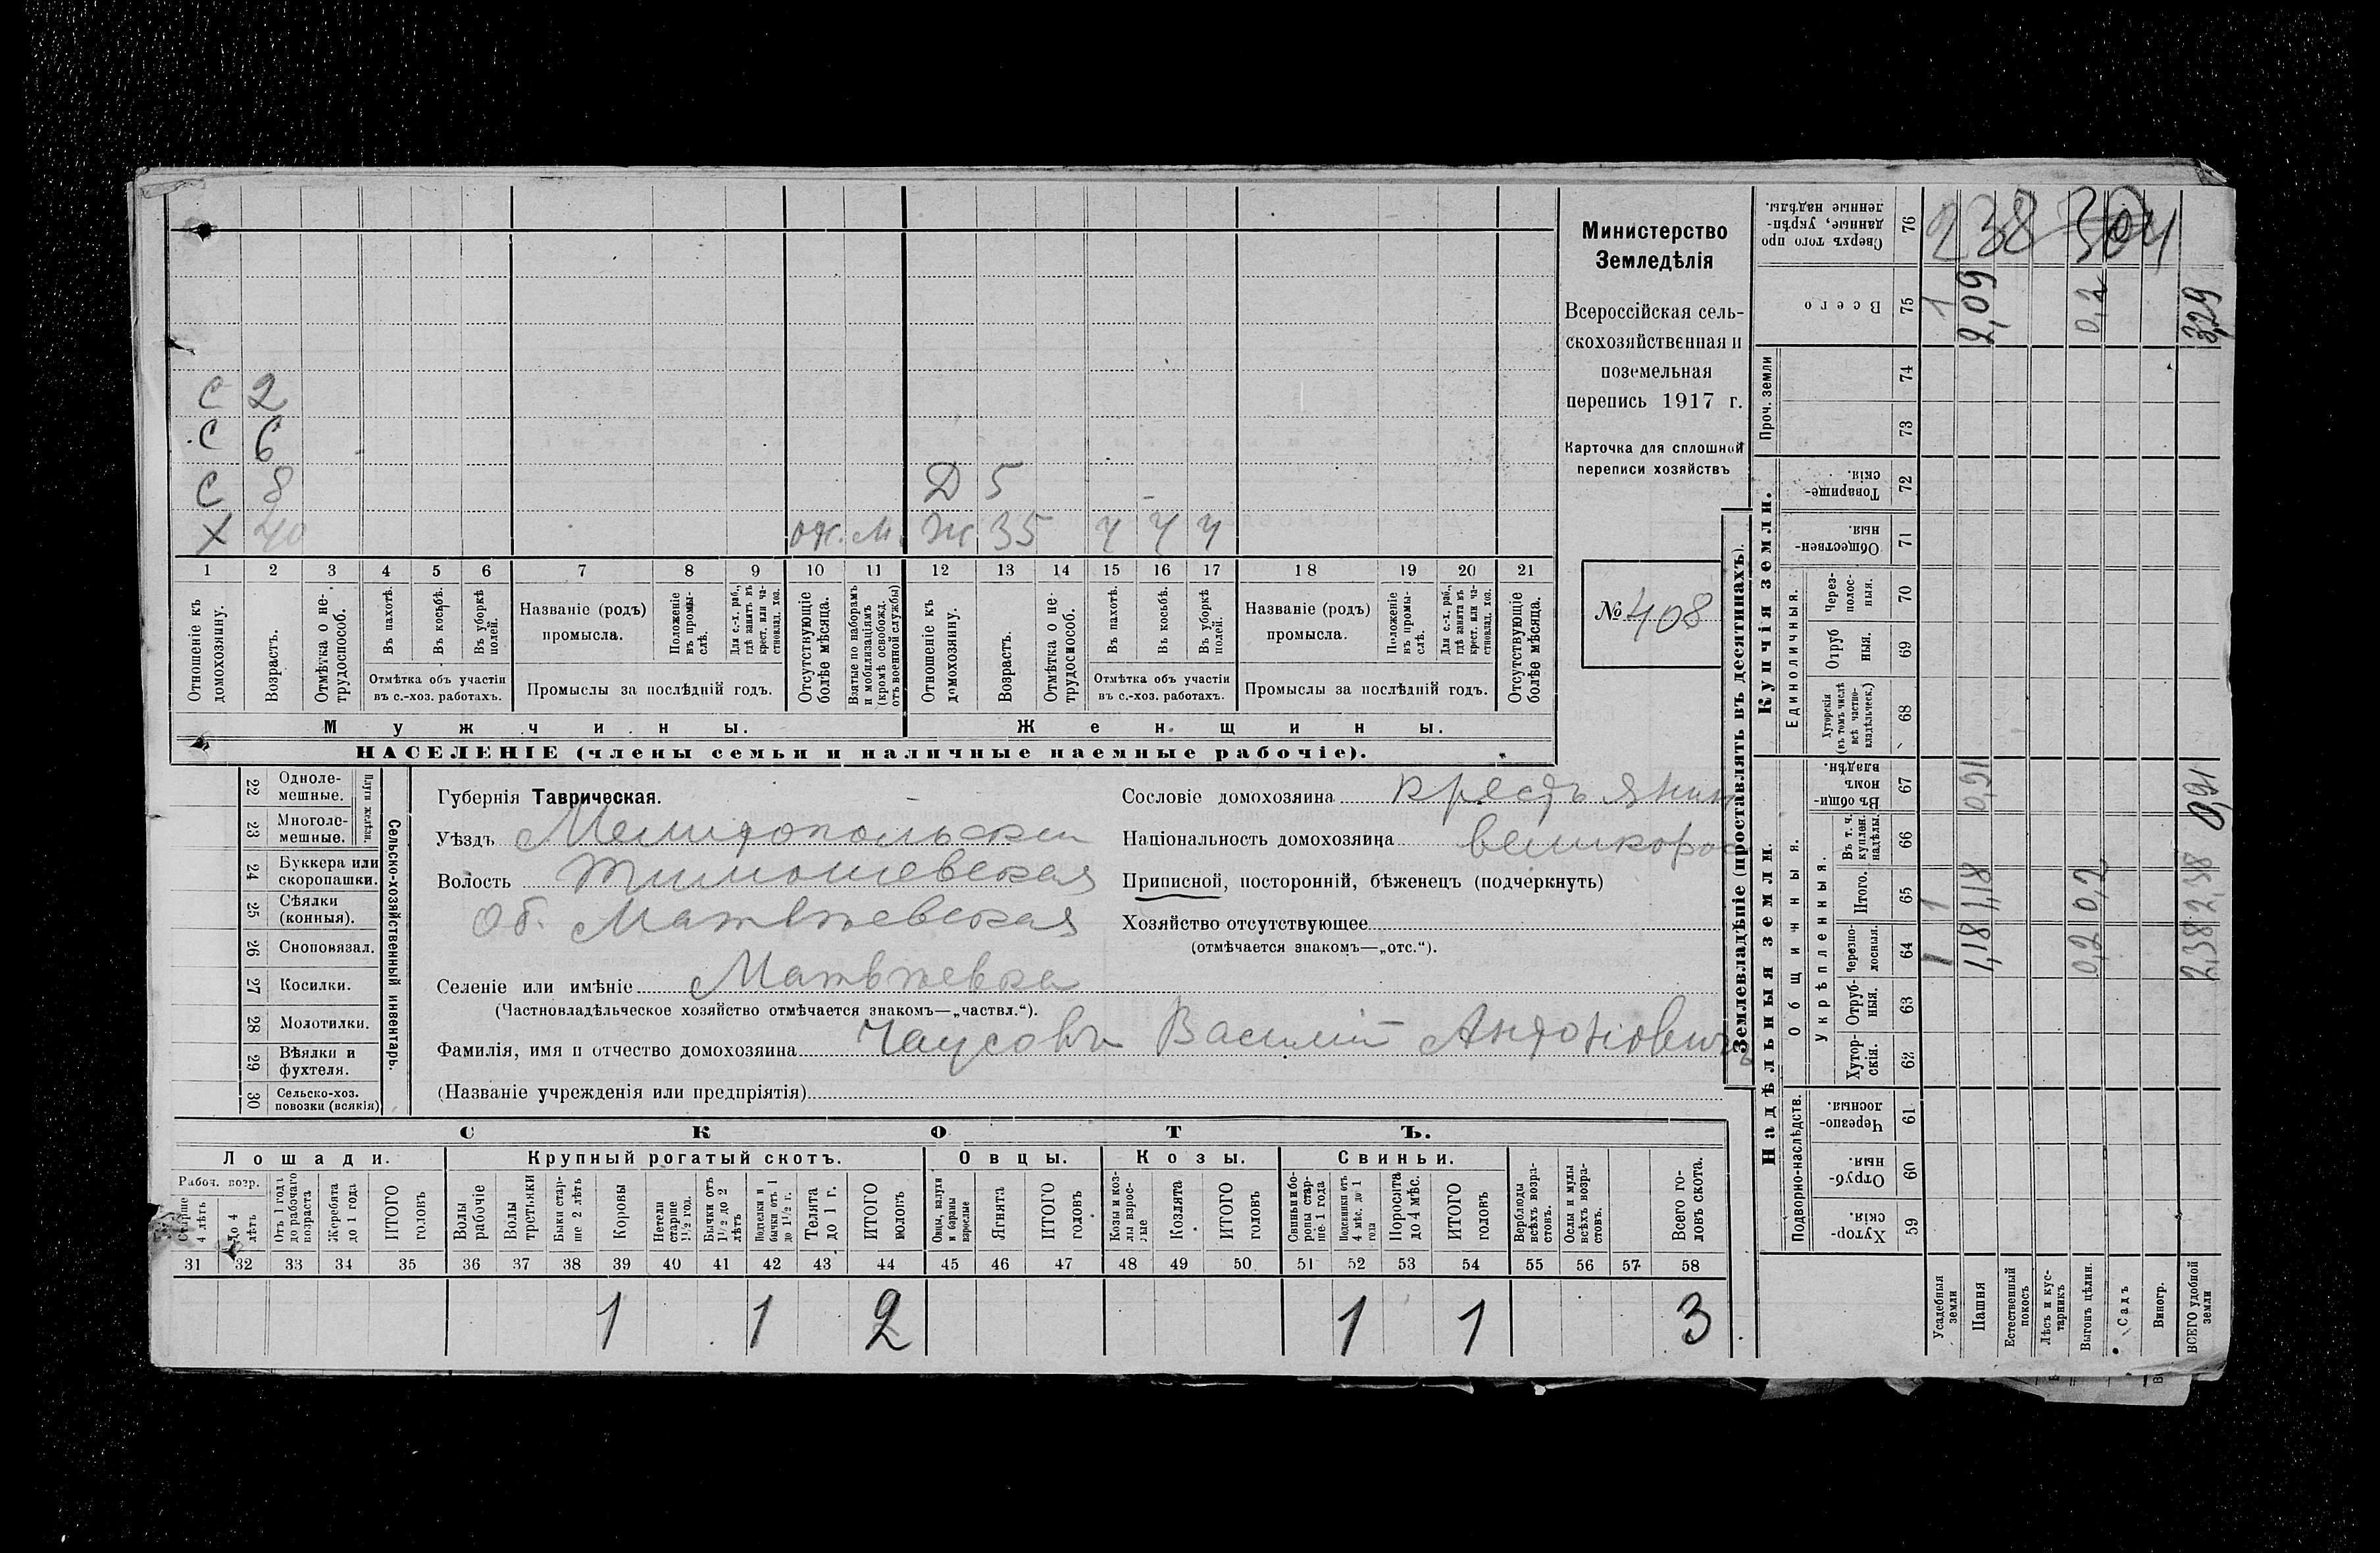 С 2
С 6
С 8 Д 5
Х 40 от. м. Ж 35 ч ч ч
1 2 3 4 5 6 7 8 9 10 11 12 13 14 15 16 17 18 19 20 21
Отношеніе къ домохозяину.
Возрастъ.
Отмѣтка о нетрудоспособ.
Въ пахотѣ.
Въ косьбѣ.
Въ уборкѣ полей.
Отмѣтка объ участіи
въ с.-хоз. работахъ.
Названіе (родъ)
промысла.
Положеніе въ промыслѣ.
Для с.-х. раб., гдѣ занятъ въ крест. или частновлад. хоз.
Промыслы за послѣдній годъ.
Отсутствующіе болѣе мѣсяца.
Взятые по наборамъ и мобилизаціямъ (кромѣ освобожд. отъ военной службы)
Отношеніе къ домохозяину.
Возрастъ.
Отмѣтка о нетрудоспособ.
Въ пахотѣ.
Въ косьбѣ.
Въ уборкѣ полей.
Отмѣтка объ участіи
въ с.-хоз. работахъ.
Названіе (родъ)
промысла.
Положеніе въ промыслѣ.
Для с.-х. раб., гдѣ занята въ крест. или частновлад. хоз.
Промыслы за послѣдній годъ.
Отсутствующіе болѣе мѣсяца.
Мужчины. Женщины.
НАСЕЛЕНІЕ (члены семьи и наличные наемные рабочіе).
Министерство
Земледѣлія
Всероссійская сель-
скохозяйственная и
поземельная
перепись 1917 г.
Карточка для сплошной
переписи хозяйствъ
№ 408
Сельско-хозяйственный инвентарь.
Плуги желѣзн.
22 Однолемешные.
23 Многолемешные.
24 Буккера или скоропашки.
25 Сѣялки (конныя).
26 Сноповязал.
27 Косилки.
28 Молотилки.
29 Вѣялки и фухтеля.
30 Сельско-хоз. повозки (всякія)
Губернія Таврическая.
Уѣздъ Мелитопольскій
Волость Тимошевская
Об. Матвѣевская
Селеніе или имѣніе Матвѣевка
(Частновладѣльческое хозяйство отмѣчается знакомъ—„частвл.“).
Фамилія, имя и отчество домохозяина Чаусовъ Василій Антоновичъ
(Названіе учрежденія или предпріятія)
Сословіе домохозяина крестьянин
Національность домохозяина великорос
Приписной, посторонній, бѣженецъ (подчеркнуть)
Хозяйство отсутствующее
(отмѣчается знакомъ—„отс.“).
СКОТЪ.
Лошади. Крупный рогатый скотъ. Овцы. Козы. Свиньи.
Рабоч. возр.
Старше 4 лѣтъ
До 4 лѣтъ
Отъ 1 года до рабочаго возраста
Жеребята до 1 года
ИТОГО головъ
Волы рабочіе
Волы третьяки
Быки старше 2 лѣтъ
Коровы
Нетели старше 1½ год.
Бычки отъ 1½ до 2 лѣтъ
Подтелки и бычки отъ 1 до 1½ г.
Телята до 1 г.
ИТОГО головъ
Овцы, валухи и бараны взрослые
Ягнята
ИТОГО головъ
Козы и козлы взрослые
Козлята
ИТОГО головъ
Свиньи и боровы старше 1 года
Подсвинки отъ 4 мѣс. до 1 года
Поросята до 4 мѣс.
ИТОГО головъ
Верблюды всѣхъ возрастовъ.
Ослы и мулы всѣхъ возрастовъ.
Всего головъ скота.
31 32 33 34 35 36 37 38 39 40 41 42 43 44 45 46 47 48 49 50 51 52 53 54 55 56 57 58
1 1 2 1 1 3
Землевладѣніе (проставлять въ десятинахъ).
Надѣльныя земли. Купчія земли. Проч. земли
Подворно-наслѣдств.
Общинныя.
Укрѣпленныя.
Единоличныя.
Хуторскія. 59
Отрубныя. 60
Черезполосныя. 61
Хуторскія. 62
Отрубныя. 63
Черезполосныя. 64
Итого. 65
Въ т. ч. куплен. надѣлы. 66
Въ общинномъ владѣн. 67
Хуторскія (въ томъ числѣ всѣ частновладѣльческ.) 68
Отрубныя. 69
Черезполосныя. 70
Общественныя. 71
Товарищескія. 72
73
74
Всего 75
Сверхъ того проданные, укрѣпленные надѣлы. 76
Усадебныя земли 1 1 1
Пашня 1,18 1,18 0,91 2,09
Естественный покосъ
Лѣсъ и кустарникъ
Выгонъ цѣлин. 0,2 0,2 0,2
Садъ
Виногр.
ВСЕГО удобной земли 2,38 2,38 0,91 3,29
238